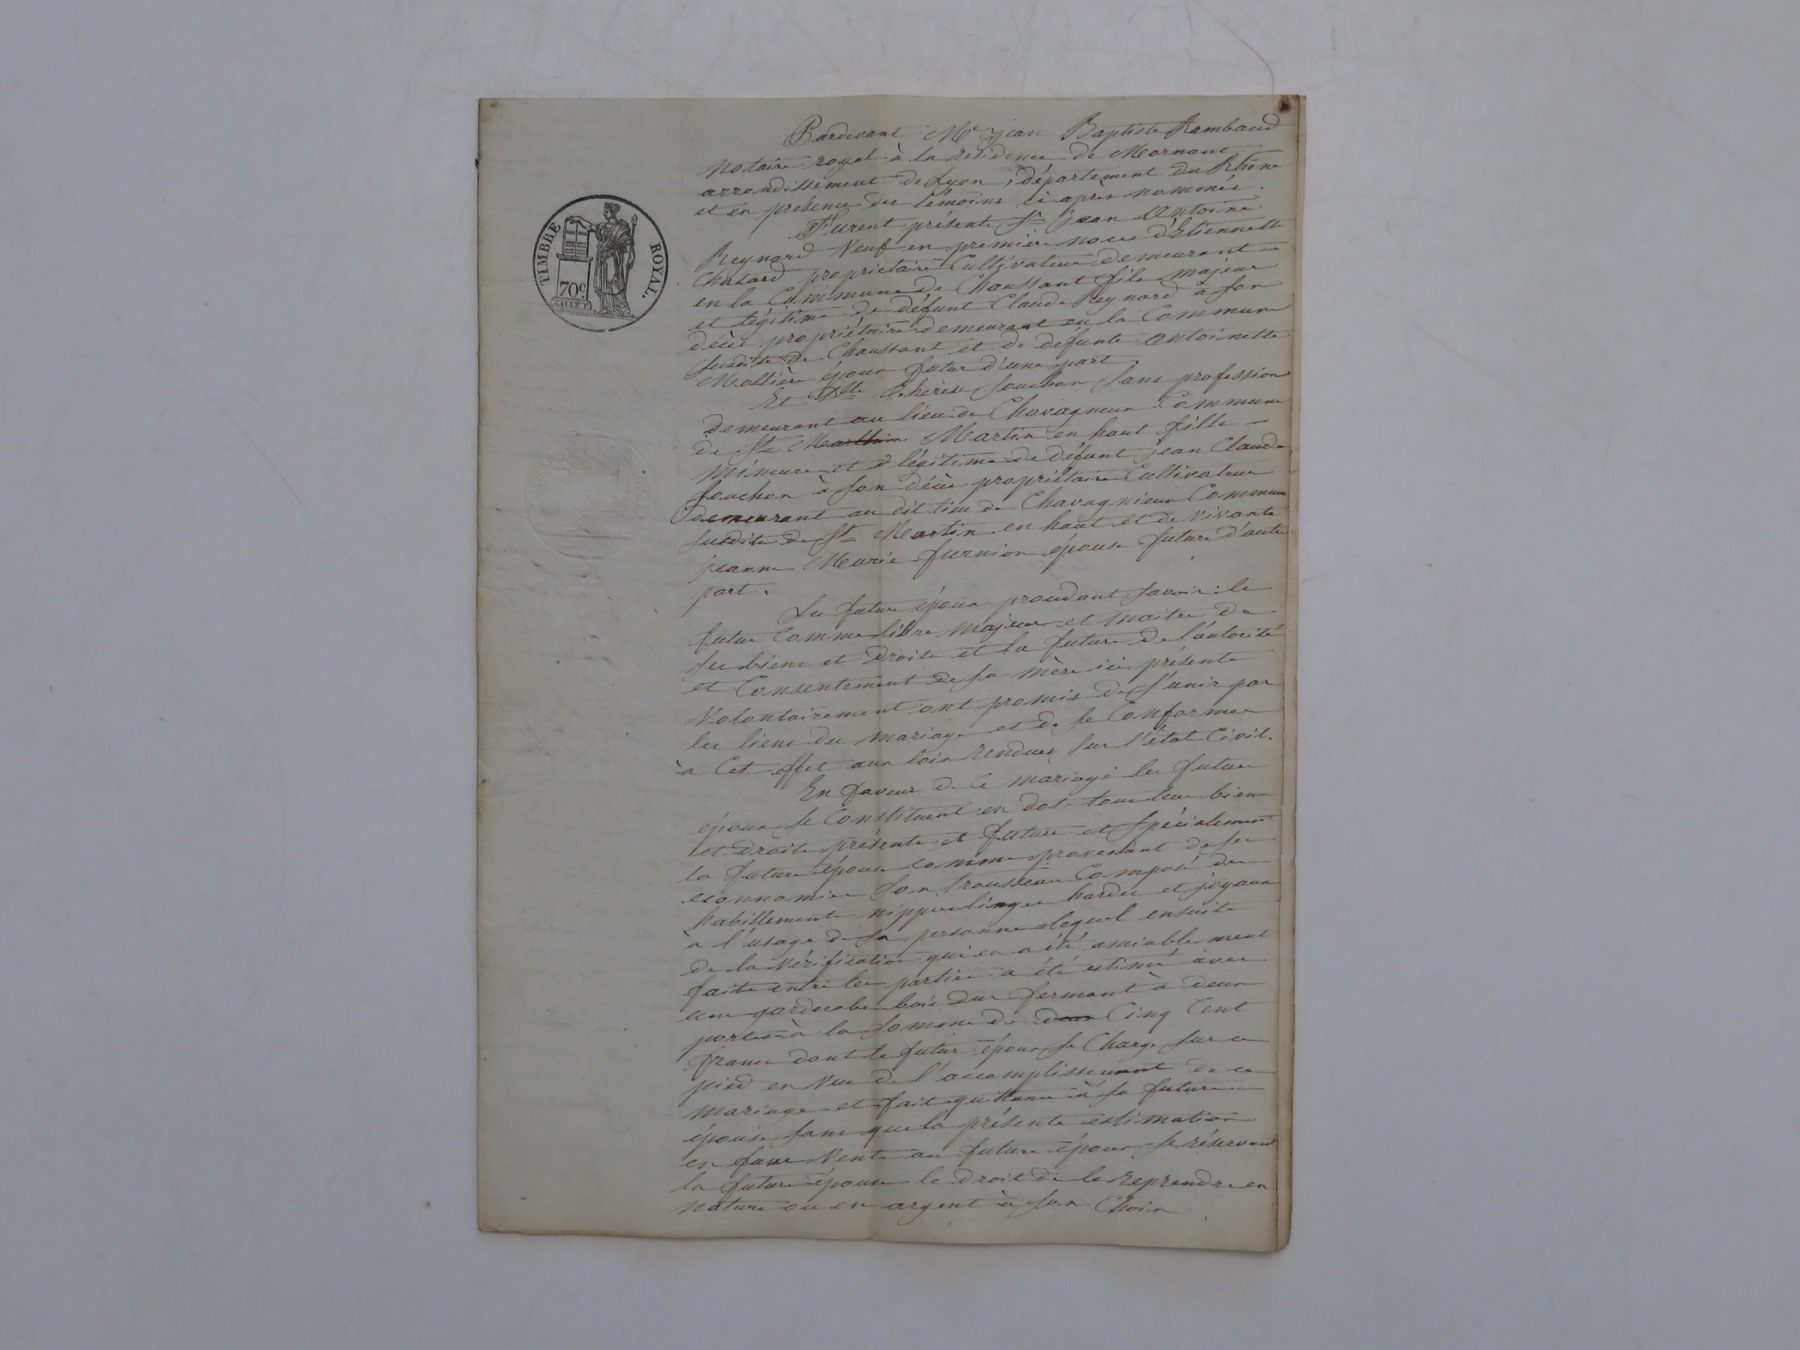 TIMBRE ROYAL.
70c
Pardevant Me jean Baptiste Rambaud
notaire royal à la résidence de Mornant
arrondissement de Lyon, département du Rhône
et en présence des témoins ci après nommés.
Furent présents Sr jean Antoine
Reynard Veuf en première noce d'Etiennette
Chatard propriétaire Cultivateur demeurant
en la Commune de Chaussant fils majeur
et légitime de défunt Claude Reynard à son
décès propriétaire demeurant en la Commune
susdite de Chaussant et de défunte Antoinette
épour futur d'une part.
Et Dlle thérèse souchon sans profession
demeurant au lieu de Chavagneux Commune
de St Martin en haut fille
mineure et légitime de défunt jean Claude
souchon à son décès propriétaire Cultivateur
demeurant au dit lieu de Chavagnieux Commune
susdite de St Martin en haut et de vivante
jeanne Marie furnion épouse future d'autre
part.
Les futurs épour procédant savoir: le
futur Comme libre majeur et maitre de
ses biens et droits et la future de l'autorité
et Consentement de sa mère ici présente
Volontairement ont promis de s'unir par
les liens du mariage et de se Conformer
à Cet effet aux lois rendues sur l'état Civil.
En faveur de Ce mariage les futurs
épour se Constituent en dot tous leur biens
et droits présents et futurs et spécialement
la future épouse comme provenant de ses
economies son trousseau Composé des
habillements nippes linges hardes et joyaux
à l'usage de sa personne lequel ensuite
de la vérification qui en a été amiablement
faite entre les parties a été estimé avec
une garderobe bois dur fermant à deux
portes à la somme de Cinq Cent
francs dont le futur épour se Charge sur ce
pied en vue de l'accomplissement de ce
mariage et fait quittance à sa future
épouse sans que la présente estimation
en fasse Vente au futur épour se réservant
la future épouse le droit de le reprendre en
nature ou en argent à son Choix